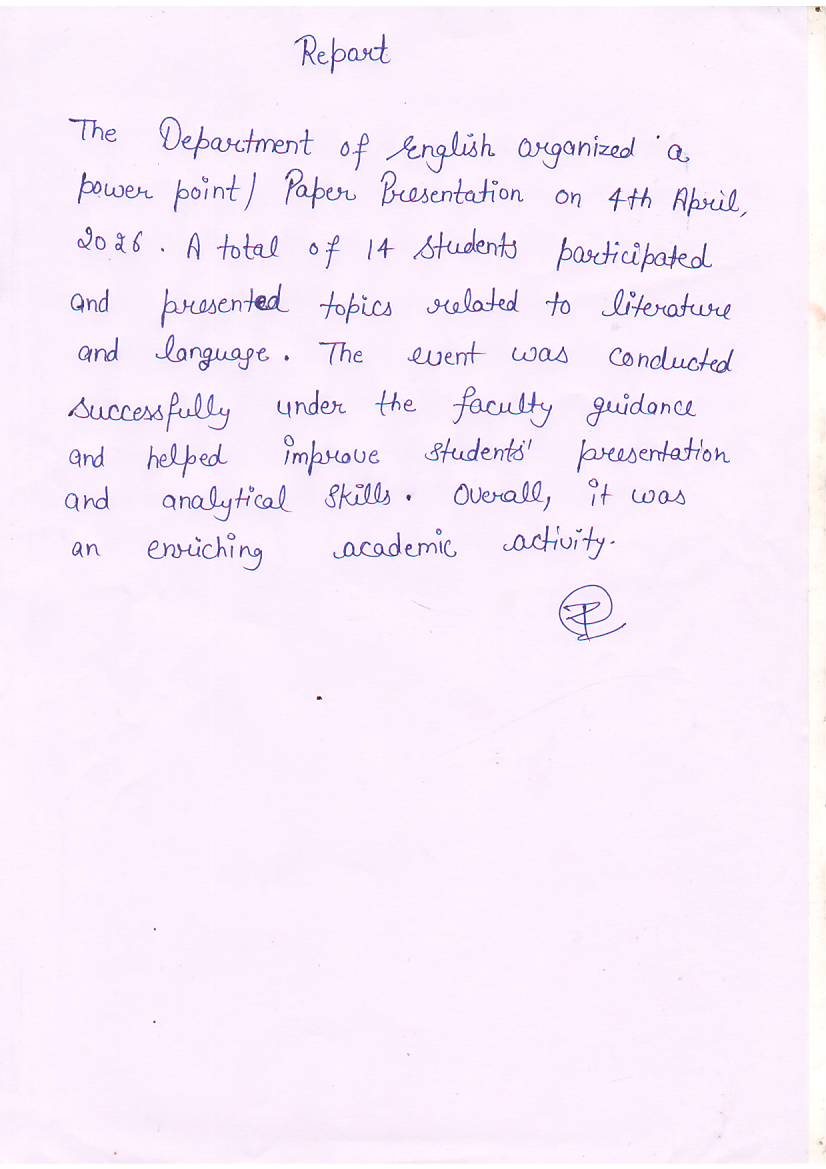 Report
The Department of English organized a
power point / Paper Presentation on 4th April,
2026. A total of 14 students participated
and presented topics related to literature
and language. The event was conducted
successfully under the faculty guidance
and helped improve students' presentation
and analytical skills. Overall, it was
an enriching academic activity.